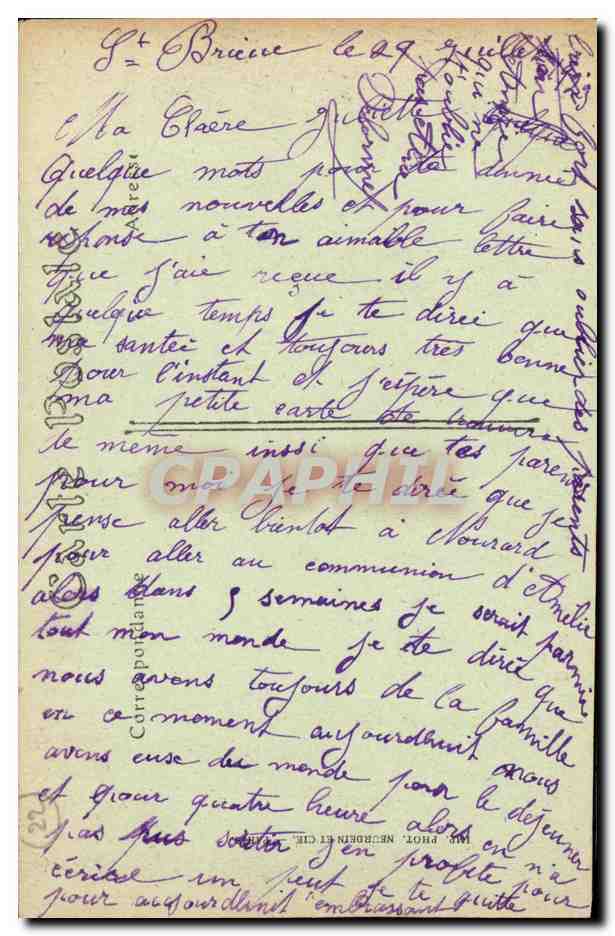 St Brieuc le 29 Juillet
Ma Claère
quelque mots pour te donnée
de mes nouvelles et pour faire
reponse à ton aimable lettre
que j'aie reçue il y à
quelque temps je te direé que
ma santeé et toujours très bonne
pour l'instant et j'espère que
ma petite carte te trouvera
de même inssi que tes parents
pour moi je te direé que je
pense aller bientot à Nourard
pour aller au communion d'Amelie
alors dans 5 semaines je serait parmie
tout mon monde je te direé que
nous avens toujours de la famille
en ce moment aujourdhuit nous
avens euse du monde pour le déjeuner
et pour quatre heure alors en n'a
pas pus sortir j'en profite pour
cérire un peut je te quitte
pour aujourdhuit embrassant
bien fort sans oublier des parents
qui ne
t'oublie
Carte Postale
Correspondance
Adresse
IMP. PHOT. NEURDEIN ET CIE.
CPAPHIL
22